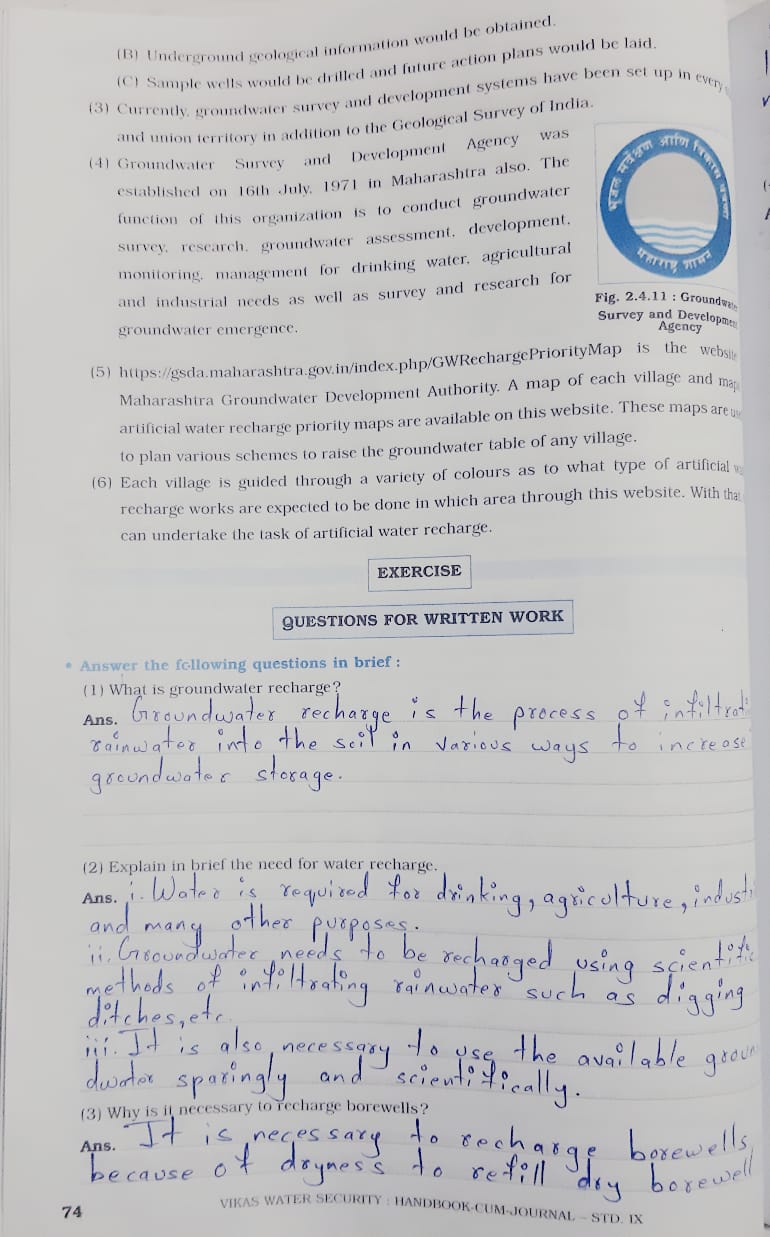 (B) Underground geological information would be obtained.
(C) Sample wells would be drilled and future action plans would be laid.
(3) Currently, groundwater survey and development systems have been set up in every
and union territory in addition to the Geological Survey of India.
(4) Groundwater Survey and Development Agency was
established on 16th July, 1971 in Maharashtra also. The
function of this organization is to conduct groundwater
survey, research, groundwater assessment, development,
monitoring, management for drinking water, agricultural
and industrial needs as well as survey and research for
groundwater emergence.
भूजल सर्वेक्षण आणि विकास यंत्रणा
महाराष्ट्र शासन
Fig. 2.4.11 : Groundwater
Survey and Development
Agency
(5) https://gsda.maharashtra.gov.in/index.php/GWRechargePriorityMap is the website
Maharashtra Groundwater Development Authority. A map of each village and map
artificial water recharge priority maps are available on this website. These maps are
to plan various schemes to raise the groundwater table of any village.
(6) Each village is guided through a variety of colours as to what type of artificial
recharge works are expected to be done in which area through this website. With that
can undertake the task of artificial water recharge.
EXERCISE
QUESTIONS FOR WRITTEN WORK
• Answer the following questions in brief :
(1) What is groundwater recharge?
Ans. Groundwater recharge is the process of infiltrati
rainwater into the soil in various ways to increase
groundwater storage.
(2) Explain in brief the need for water recharge.
Ans. i. Water is required for drinking, agriculture, industri
and many other purposes.
ii. Groundwater needs to be recharged using scientific
methods of infiltrating rainwater such as digging
ditches, etc.
iii. It is also necessary to use the available groun
dwater sparingly and scientifically.
(3) Why is it necessary to recharge borewells?
Ans. It is necessary to recharge borewells
because of dryness to refill dry borewell
74
VIKAS WATER SECURITY : HANDBOOK-CUM-JOURNAL – STD. IX